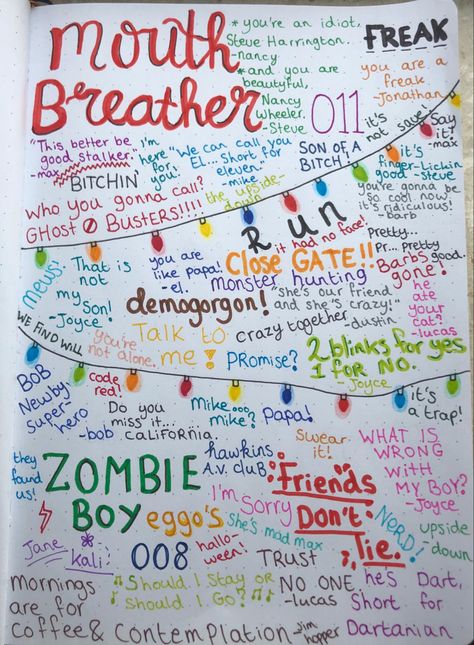 Mouth
Breather
*"you're an idiot,
Steve Harrington.
-nancy
*"and you are
beautiful,
Nancy
Wheeler.
-Steve
FREAK
you are a
freak.
-Jonathan
011
it's
not safe!
Say
it!
max
"This better be
good stalker."
-max
I'm
here
for
you.
"We can call you
EL... Short for
eleven."
-mike
SON OF A
BITCH!
it's
finger-Lichin
good -Steve
BITCHIN'
who you gonna call?
GHOST BUSTERS!!!!
the upside-
down
you're gonna be
so cool now
it's ridiculous!
-barb
RUN
it had no face!
Pretty...
Pr... Pretty
good.
mews!
That is
not
my
Son!
-Joyce
you are
like papa!
-el.
Close GATE!!
monster hunting
Barb's
gone!
he
ate
your
cat!
-lucas
demogorgon!
"She's our friend
and she's crazy!"
-dustin
WE FIND WILL
you're
not alone.
Talk to
me!
crazy together
Promise?
2 blinks for yes
1 for NO.
-Joyce
BOB
Newby
super-
hero
code
red!
Do you
miss it...
-bob
CALIFORNIA
Mike...
mike?
Papa!
it's
a trap!
they
found
us!
ZOMBIE
BOY
hawkins
A.V. cluB
Swear
it!
WHAT IS
WRONG
WITH
MY BOY?
-Joyce
eggo's
I'm
Sorry
Friends
Don't
Lie.
She's mad max
NERD!
upside
down
Jane
Kali
008
hallo-
ween!
TRUST
NO ONE
-lucas
he's Dart,
Short for
Dartanian
mornings
are for
coffee & contemplation -jim
hopper
Should I Stay or
Should I Go?